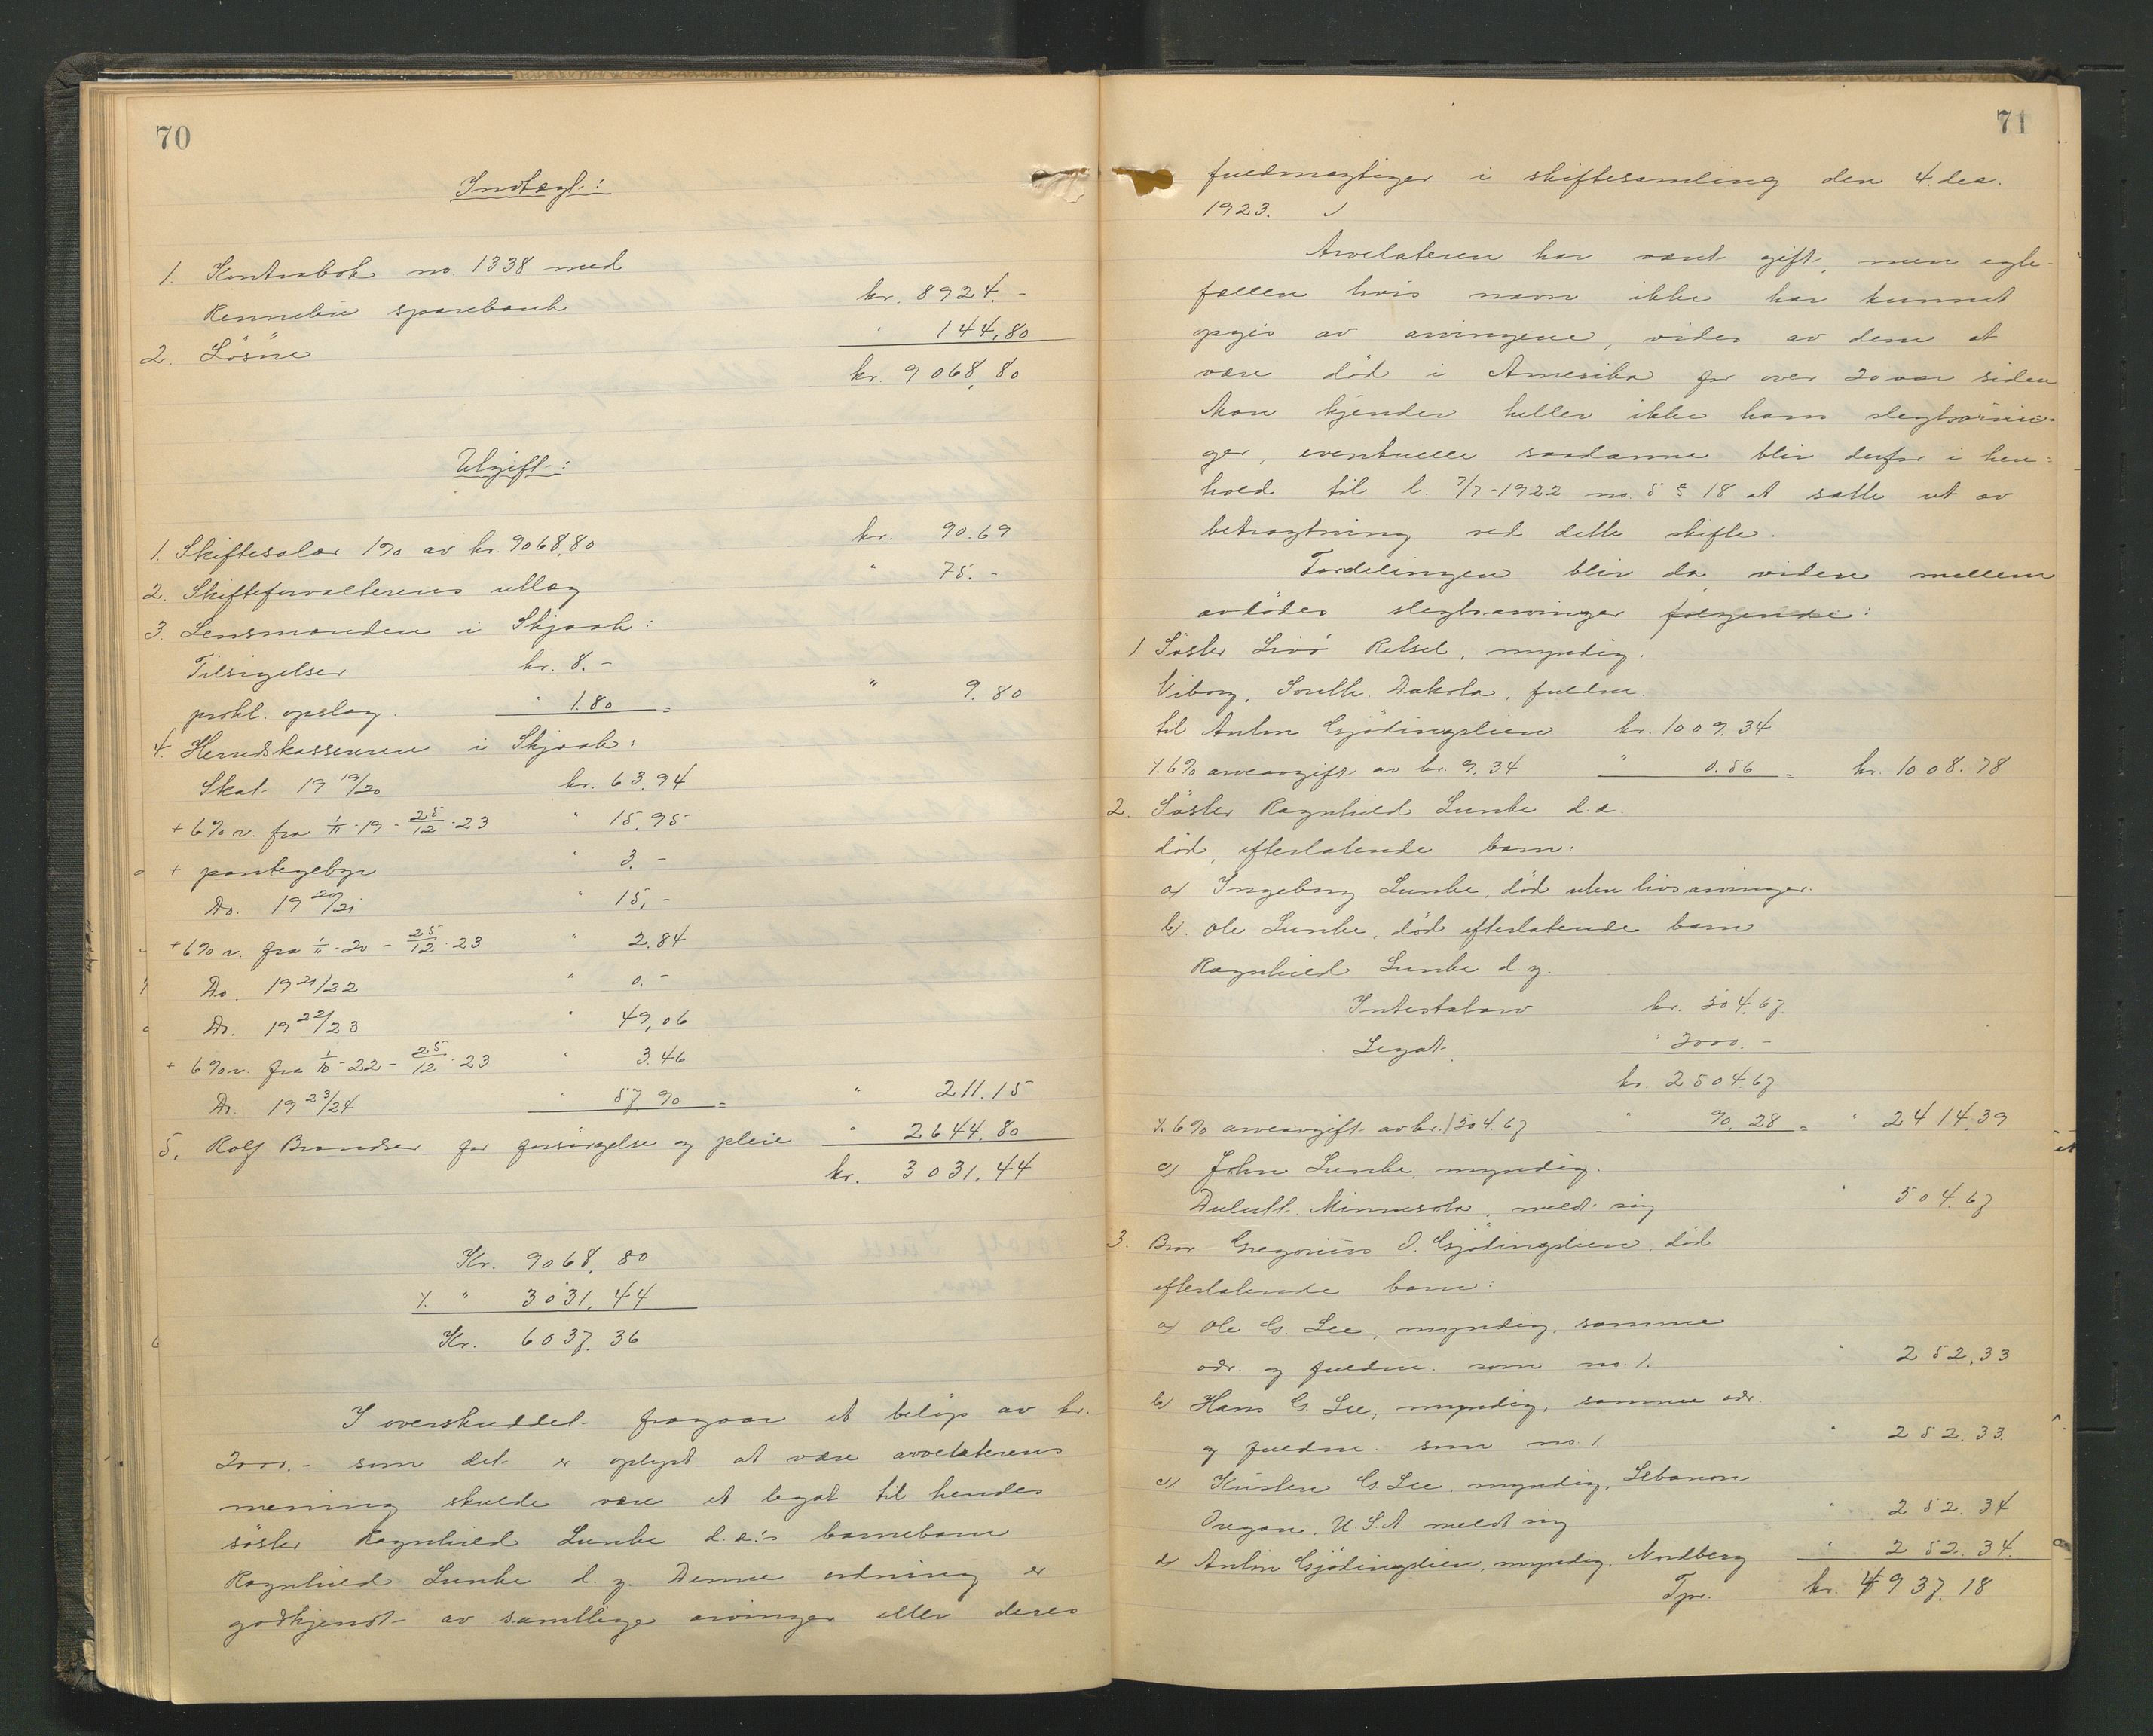 70
Indtægt:
1. Kontrabok no. 1338 med
Rennebu sparebank kr. 8924.-
2. Løsøre " 144,80
kr. 9068,80
Utgift:
1. Skiftesalær 1% av kr. 9068,80 kr. 90.69
2. Skifteforvalterens utlæg " 75.-
3. Lensmanden i Skjaak:
Tilsigelser kr. 8.-
prokl. opslag. " 1.80 = " 9.80
4. Herredskassereren i Skjaak:
Skat 19 19/20 kr. 63.94
+ 6% r. fra 1/11-19 - 25/12-23 " 15,95
+ pantegebyr " 3.-
Do. 19 20/21 " 15,-
+ 6% r. fra 1/11-20 - 25/12-23 " 2.84
Do. 19 21/22 " 0.-
Do. 19 22/23 " 49,06
+ 6% r. fra 1/10-22 - 25/12-23 " 3.46
Do. 19 23/24 " 57.90 = " 211.15
5. Rolf Brandser for forsørgelse og pleie " 2644.80
kr. 3031.44
Kr. 9068,80
% " 3031,44
Kr. 6037.36
I overskuddet fragaar et beløp av kr.
2000.- som det er oplyst at være arvelaterens
mening skulde være et legat til hendes
søster Ragnhild Lunke d.e.'s barnebarn
Ragnhild Lunke d.y. Denne ordning er
godkjendt av samtlige arvinger eller deres
71
fuldmægtiger i skiftesamling den 4. des.
1923.
Arvelateren har været gift, men egte-
fællen hvis navn ikke har kunnet
opgis av arvingene, vides av dem at
være død i Amerika for over 20 aar siden
Man kjender heller ikke hans slegtsarvin-
ger, eventuelle saadanne blir derfor i hen-
hold til l. 7/7-1922 no. 5 § 18 at sætte ut av
betragtning ved dette skifte.
Fordelingen blir da videre mellem
avdødes slegtsarvinger følgende:
1. Søster Livø Retsel, myndig.
Viborg, South Dakota, fuldm.
til Anton Gjødingslien kr. 1009.34
% 6% arveavgift av kr. 9.34 " 0.56 = kr. 1008.78
2. Søster Ragnhild Lunke d.e.
død, efterlatende barn:
a) Ingeborg Lunke, død uten livsarvinger.
b) Ole Lunke, død efterlatende barn
Ragnhild Lunke d.y.
Intestatarv kr. 504.67
Legat " 2000.-
kr. 2504.67
% 6% arveavgift av kr. 1504.67 " 90.28 = " 2414.39
c) John Lunke, myndig.
Duluth. Minnesota, meldt sig " 504.67
3. Bror Gregorius O. Gjødingslien, død
efterlatende barn:
a) Ole G. Lee, myndig, samme
adr. og fuldm. som no. 1. " 252,33
b) Hans G. Lee, myndig, samme adr.
og fuldm. som no 1. " 252.33
c) Kristen G. Lee, myndig, Lebanon
Oregon, U.S.A. meldt sig " 252.34
d) Anton Gjødingslien, myndig, Nordberg " 252.34.
Tpr. kr. 4937.18